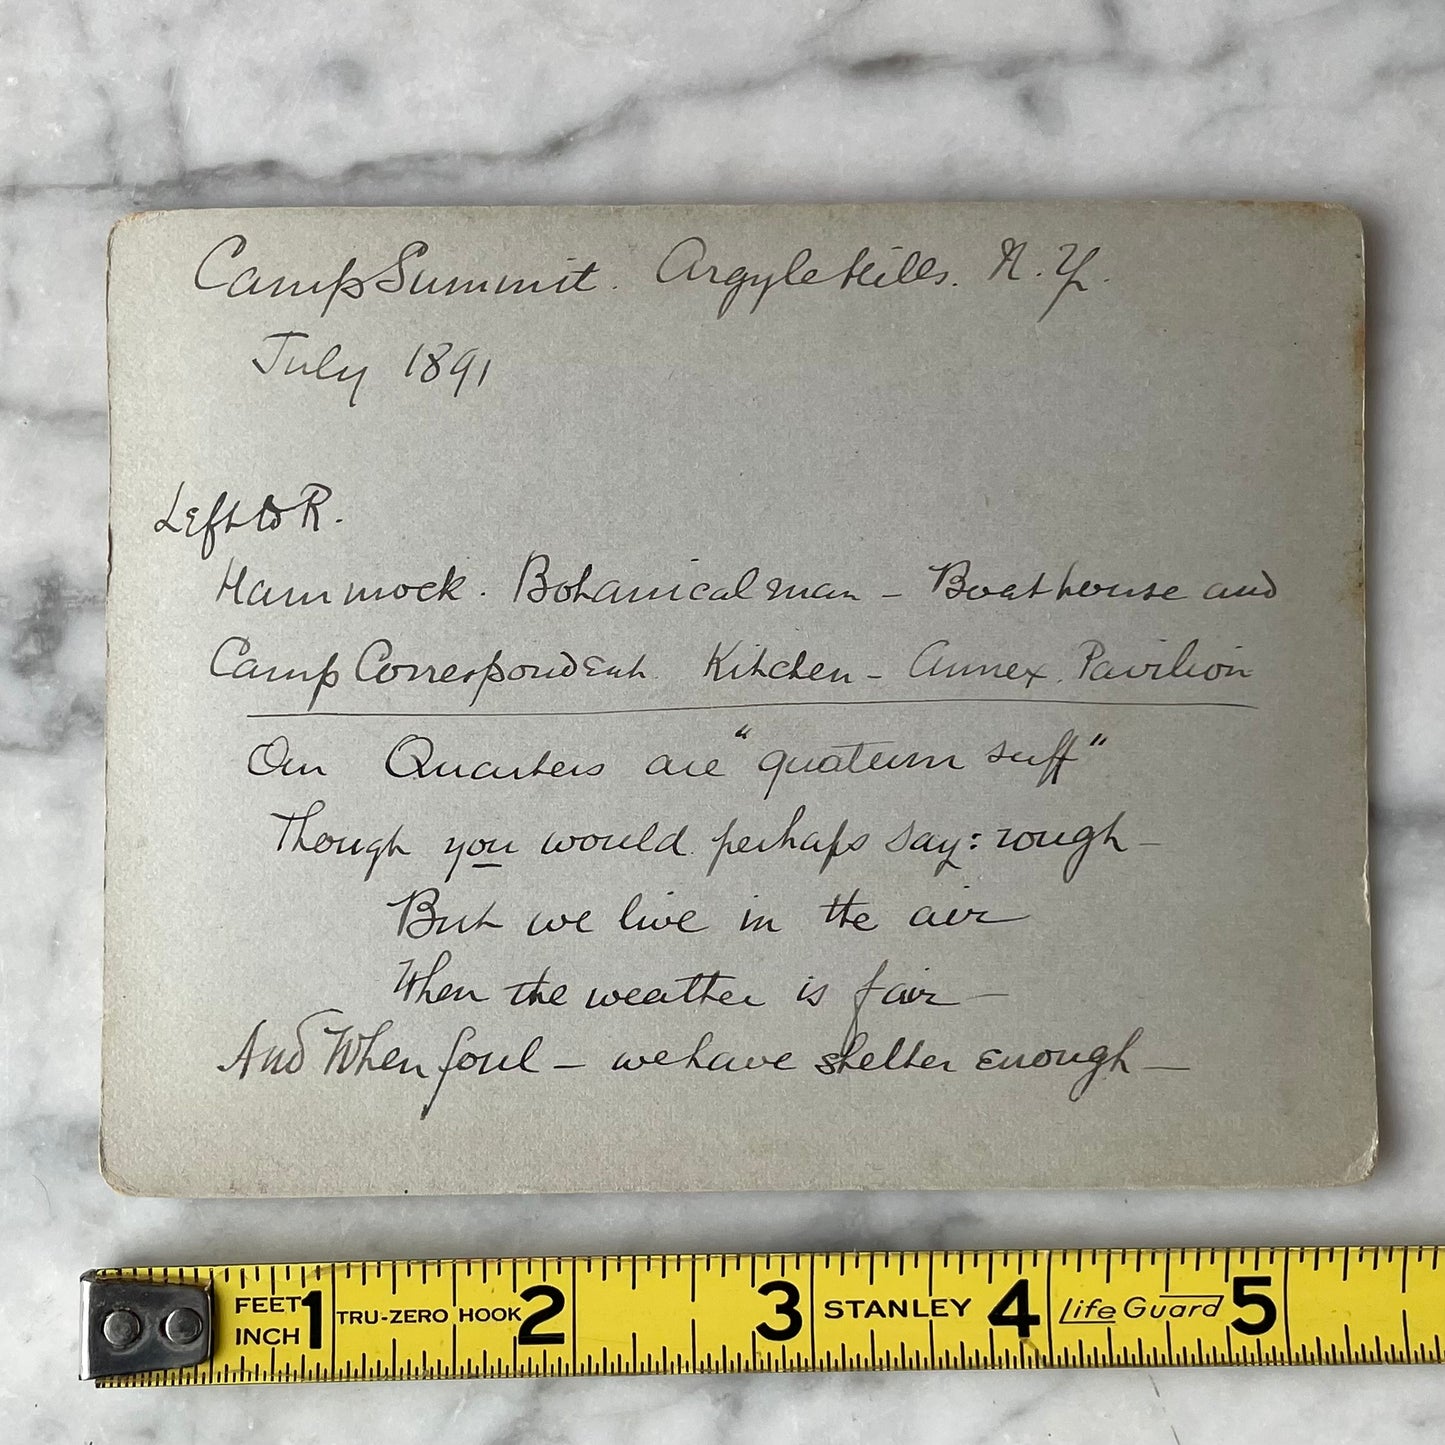 Camp Summit. Argyle Hills. N.Y.
July 1891
Left to R.
Hammock. Botanical man - Boathouse and
Camp Correspondent. Kitchen - Annex. Pavilion
Our Quarters are "quatum suff"
Though you would perhaps say: rough -
But we live in the air
When the weather is fair -
And When foul - we have shelter enough -
FEET INCH 1 TRU-ZERO HOOK 2 3 STANLEY 4 Life Guard 5